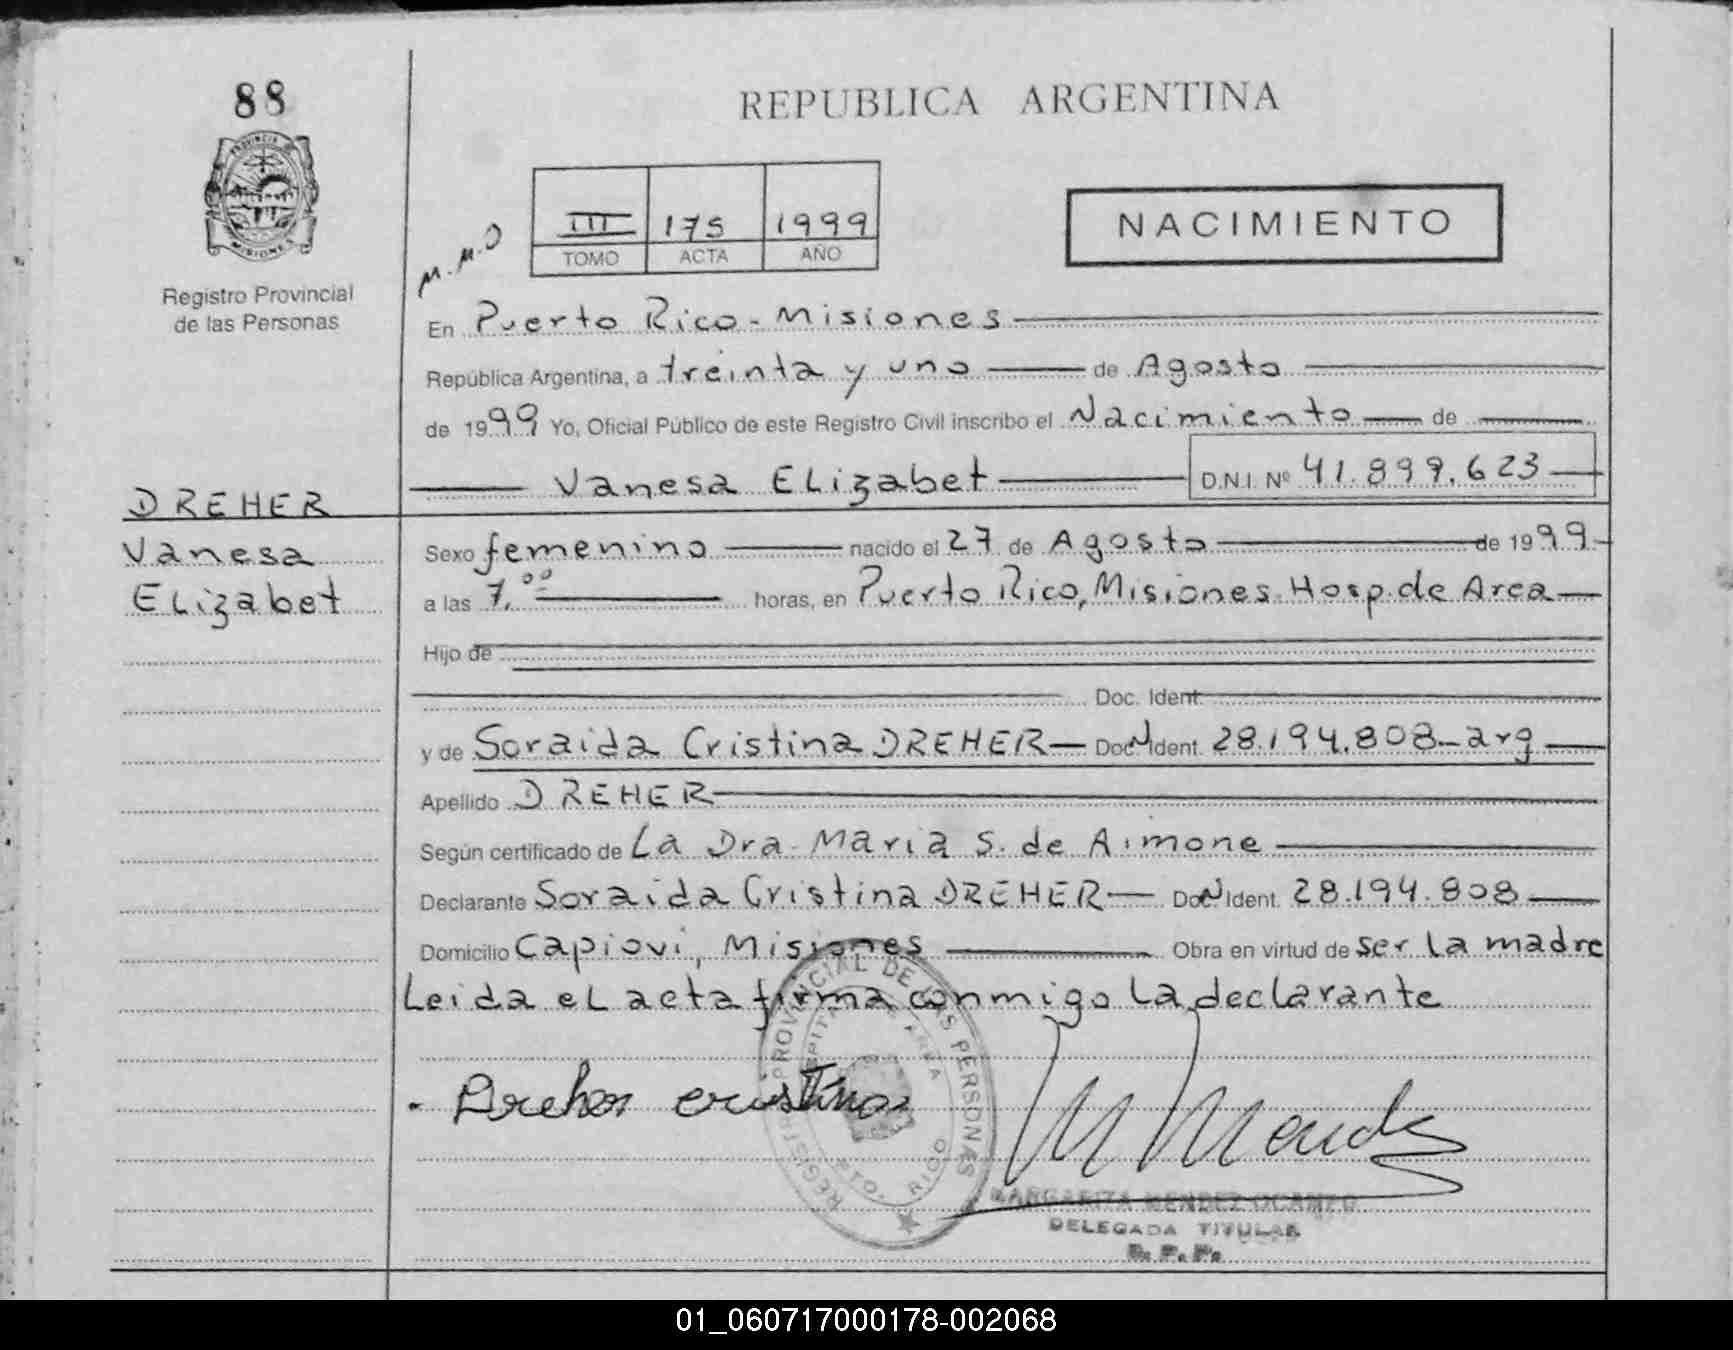 88
REPUBLICA ARGENTINA
PROVINCIA DE
MISIONES
Registro Provincial
de las Personas
M.M.O
III 175 1999
TOMO ACTA AÑO
NACIMIENTO
En Puerto Rico - Misiones
República Argentina, a treinta y uno de Agosto
de 1999 Yo, Oficial Público de este Registro Civil inscribo el Nacimiento de
Vanesa Elizabet D.N.I. Nº 41.899.623
DREHER
Vanesa
Elizabet
Sexo femenino nacido el 27 de Agosto de 1999
a las 7,00 horas, en Puerto Rico, Misiones Hosp. de Area
Hijo de
Doc. Ident.
y de Soraida Cristina DREHER Doc N Ident. 28.194.808 - arg
Apellido DREHER
Según certificado de La Dra. Maria S. de Aimone
Declarante Soraida Cristina DREHER Doc N Ident. 28.194.808
Domicilio Capiovi, Misiones Obra en virtud de ser la madre
Leida el acta firma conmigo la declarante
REGISTRO PROVINCIAL DE LAS PERSONAS
PTO. RICO
Dreher cristina
M Mendez
MARGARITA MENDEZ OCAMPO
DELEGADA TITULAR
R.P.P.
01_060717000178-002068